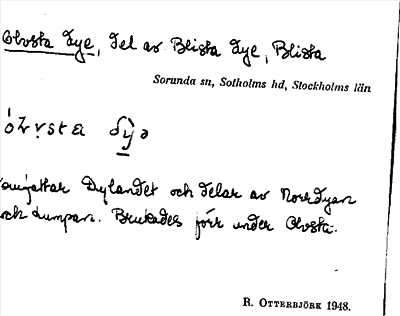 Olvsta Dye, del av Blista Dye, Blista
Sorunda sn, Sotholms hd, Stockholms län
omfattar Dylandet och delar av Norrdyan
och Lumpan. Brukades förr under Olvsta.
R. OTTERBJÖRK 1948.